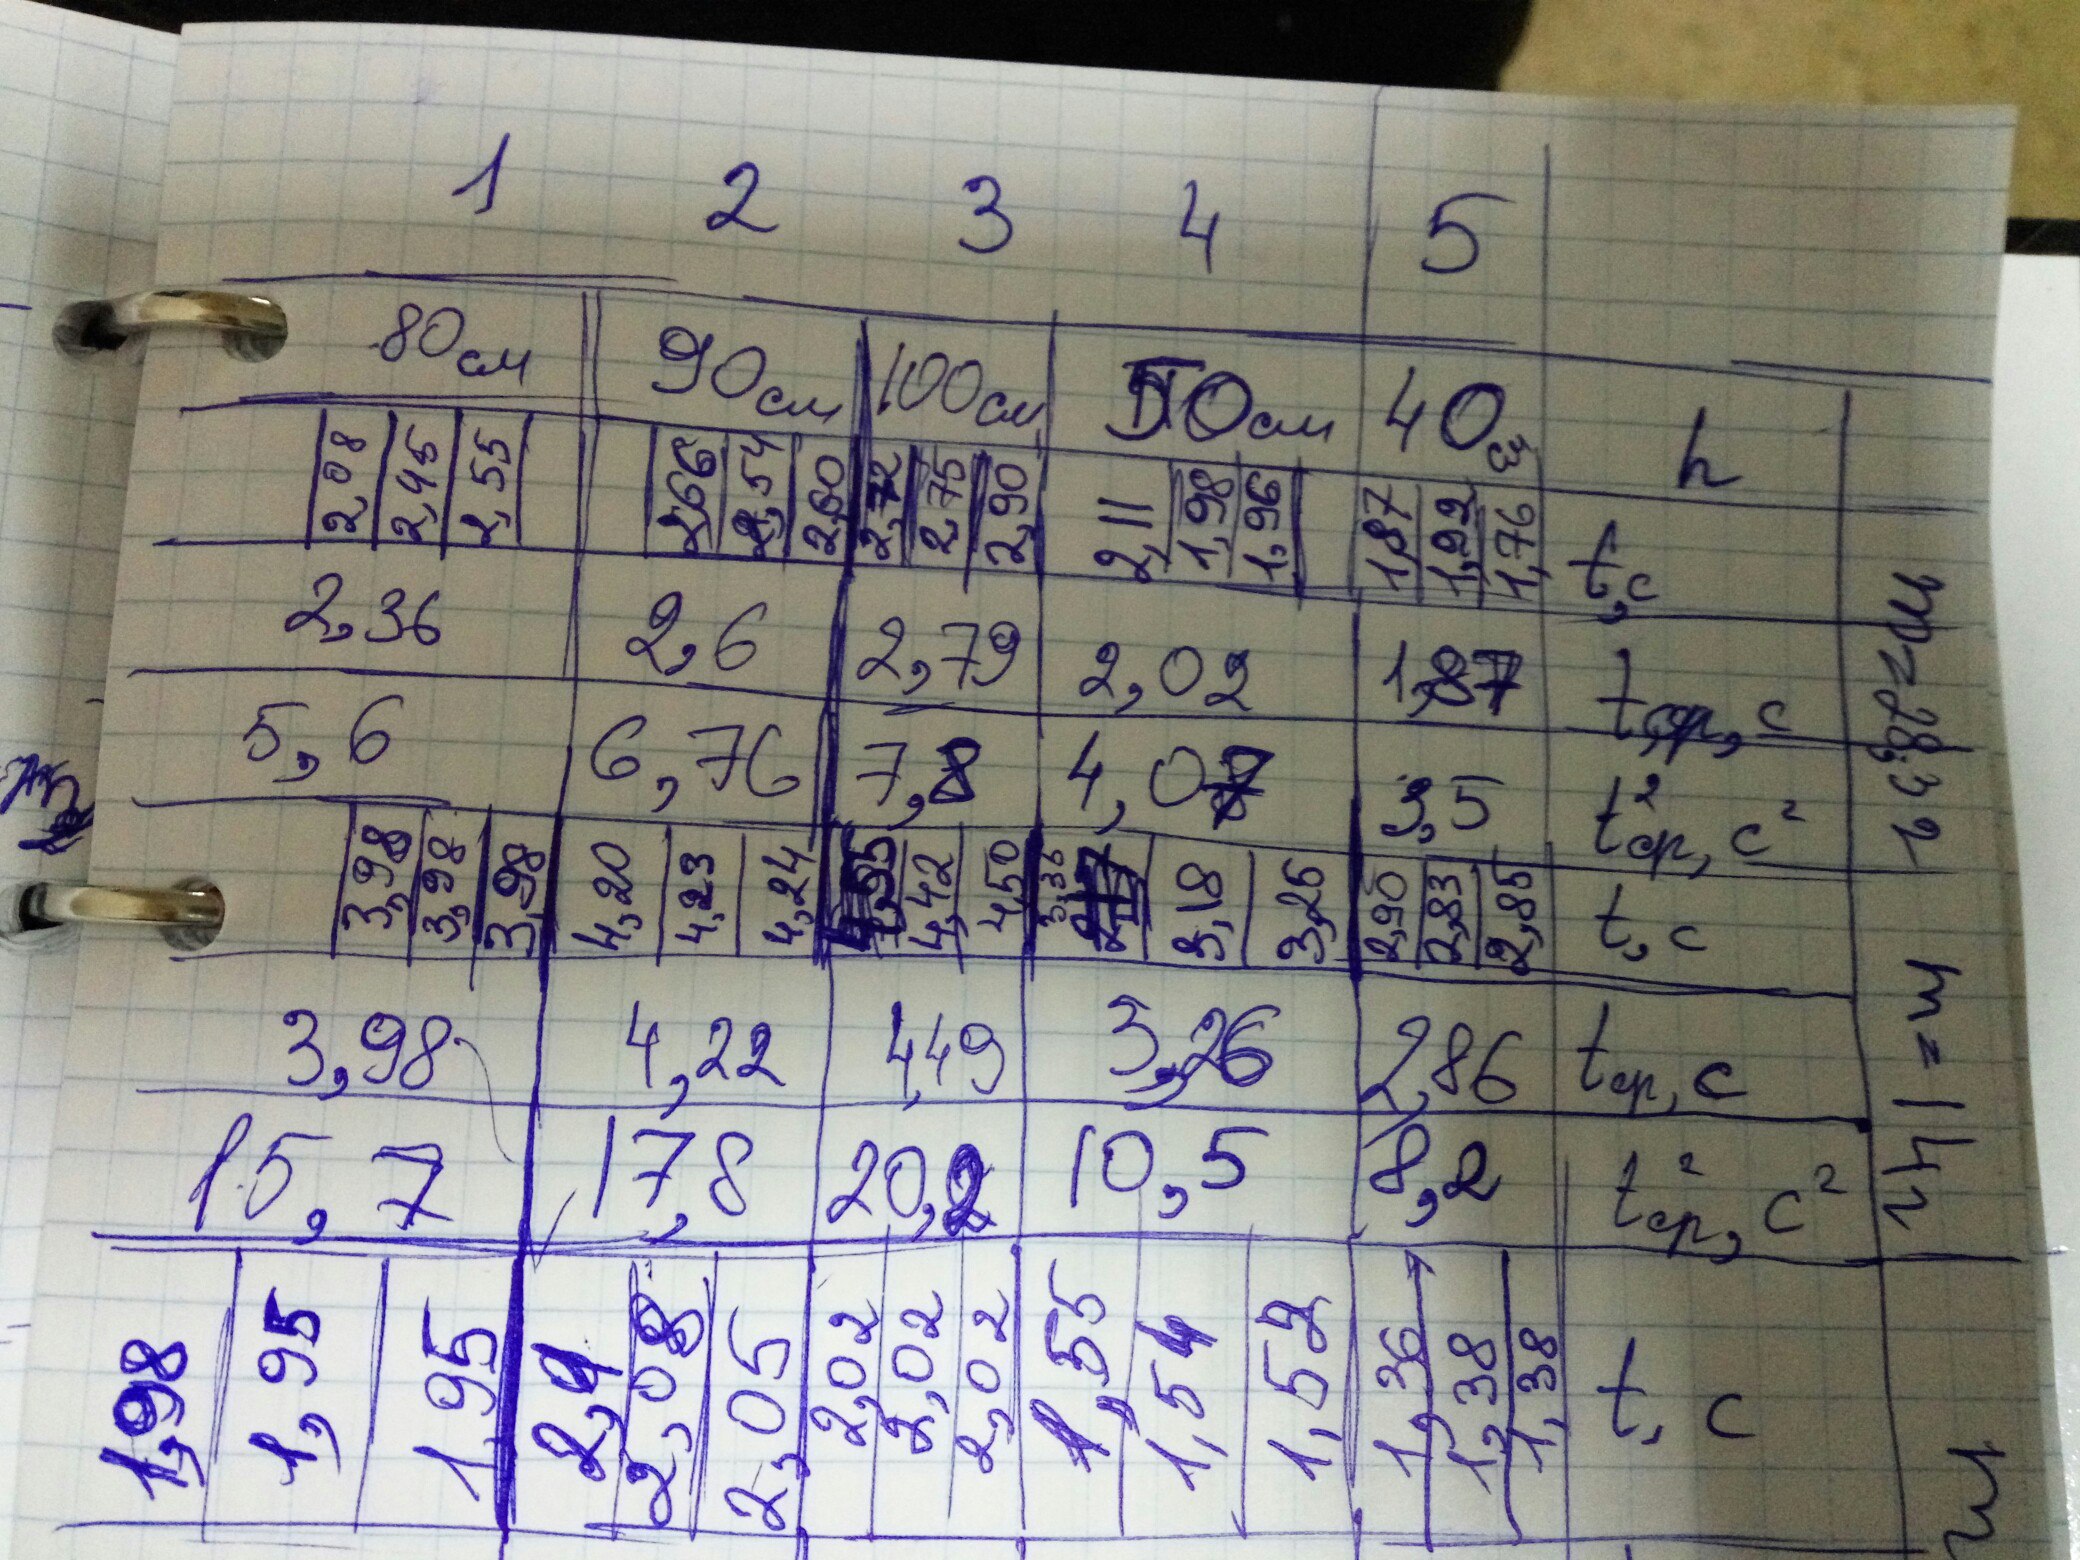 1 2 3 4 5
80см 90см 100см 50см 40см h
2,08 2,45 2,55 2,66 2,54 2,60 2,72 2,75 2,90 2,11 1,98 1,96 1,87 1,92 1,76 t,с
2,36 2,6 2,79 2,02 1,87 tср, с
5,6 6,76 7,8 4,07 3,5 t²ср, с²
3,98 3,98 3,98 4,20 4,23 4,24 4,42 4,50 3,36 3,18 3,26 2,90 2,83 2,85 t, с
3,98 4,22 4,49 3,26 2,86 tср, с
15,7 17,8 20,2 10,5 8,2 t²ср, с²
1,98 1,95 1,95 2,08 2,05 2,02 2,02 2,02 1,55 1,54 1,52 1,36 1,38 1,38 t, с